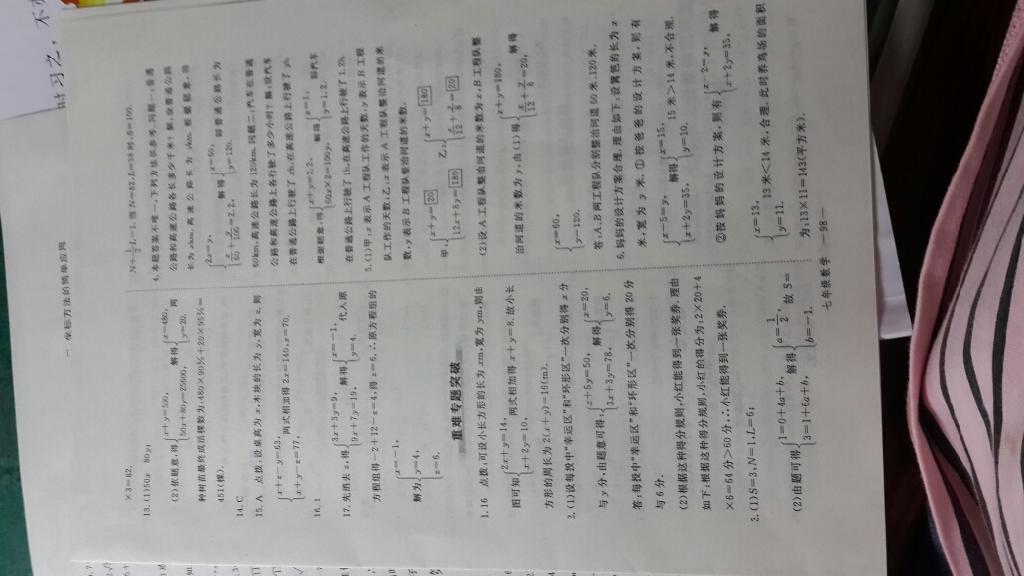 ×3=82.
13.(1)50x 80y;
(2)依题意,得{x+y=500, 50x+80y=25600, 解得{x=480, y=20. 两
种树苗最终成活棵数为:480×90%+20×95%=
451(棵).
14.C
15.A 点拨:设桌高为x,木块的长为y,宽为z,则
{x+z-y=63, x+y-z=77, 两式相加得2x=140,x=70.
16.1
17.先消去z,得{3x+3y=9, 9x+7y=19, 解得{x=-1, y=4. 代入原
方程组得-2+12-z=4,得z=6.∴原方程组的
解为{x=-1, y=4, z=6.
重难专题突破
1.16 点拨:可设小长方形的长为xm,宽为ym,则由
图可知{2x+y=14, x+2y=10, 两式相加得x+y=8.故小长
方形的周长为2(x+y)=16(m).
2.(1)设每投中“幸运区”和“环形区”一次分别得x分
与y分,由题意可得{x+5y=50, 1x+3y=78, 解得{x=20, y=6.
答:每投中“幸运区”和“环形区”一次分别得20分
与6分.
(2)根据这种得分规则,小红能得到一张奖券.理由
如下:根据这种得分规则,小红的得分为:2×20+4
×6=64分>60分.∴小红能得到一张奖券.
3.(1)S=3,N=1,L=6;
(2)由题可得{1=0+4a+b, 3=1+6a+b, 解得{a=1/2, b=-1. 故S=
N+1/2L-1.当N=82,L=38时,S=100.
4.本题答案不唯一,下列方法供参考.问题一:普通
公路和高速公路各长多少千米?解:设普通公路
长为xkm,高速公路长为ykm.依题意,得
{2x=y, x/60+y/100=2.2, 解得{x=60, y=120. 即普通公路长为
60km,高速公路长为120km.问题二:汽车在普通
公路和高速公路上各行驶了多少小时?解:设汽车
在普通公路上行驶了xh,在高速公路上行驶了yh.
根据题意,得{x+y=2.2, 60x×2=100y, 解得{x=1, y=1.2. 即汽车
在普通公路上行驶了1h,在高速公路上行驶了1.2h.
5.(1)甲:x表示A工程队工作的天数,y表示B工程
队工作的天数;乙:x表示A工程队整治河道的米
数,y表示B工程队整治河道的米数.
甲:{x+y=20 12x+8y=180 乙:{x+y=180 x/12+y/8=20
(2)设A工程队整治河道的米数为x,B工程队整
治河道的米数为y,由(1)得{x+y=180, x/12+y/8=20, 解得
{x=60, y=120.
答:A,B两工程队分别整治河道60米,120米.
6.妈妈的设计方案合理.理由如下:设篱笆的长为x
米,宽为y米.①按爸爸的设计方案,则有
{x-5=y, x+2y=35, 解得{x=15, y=10. 15米>14米,不合理.
②按妈妈的设计方案,则有{x-2=y, x+2y=35, 解得
{x=13, y=11. 13米<14米,合理.此时养鸡场的面积
为:13×11=143(平方米).
七年级数学 —98—